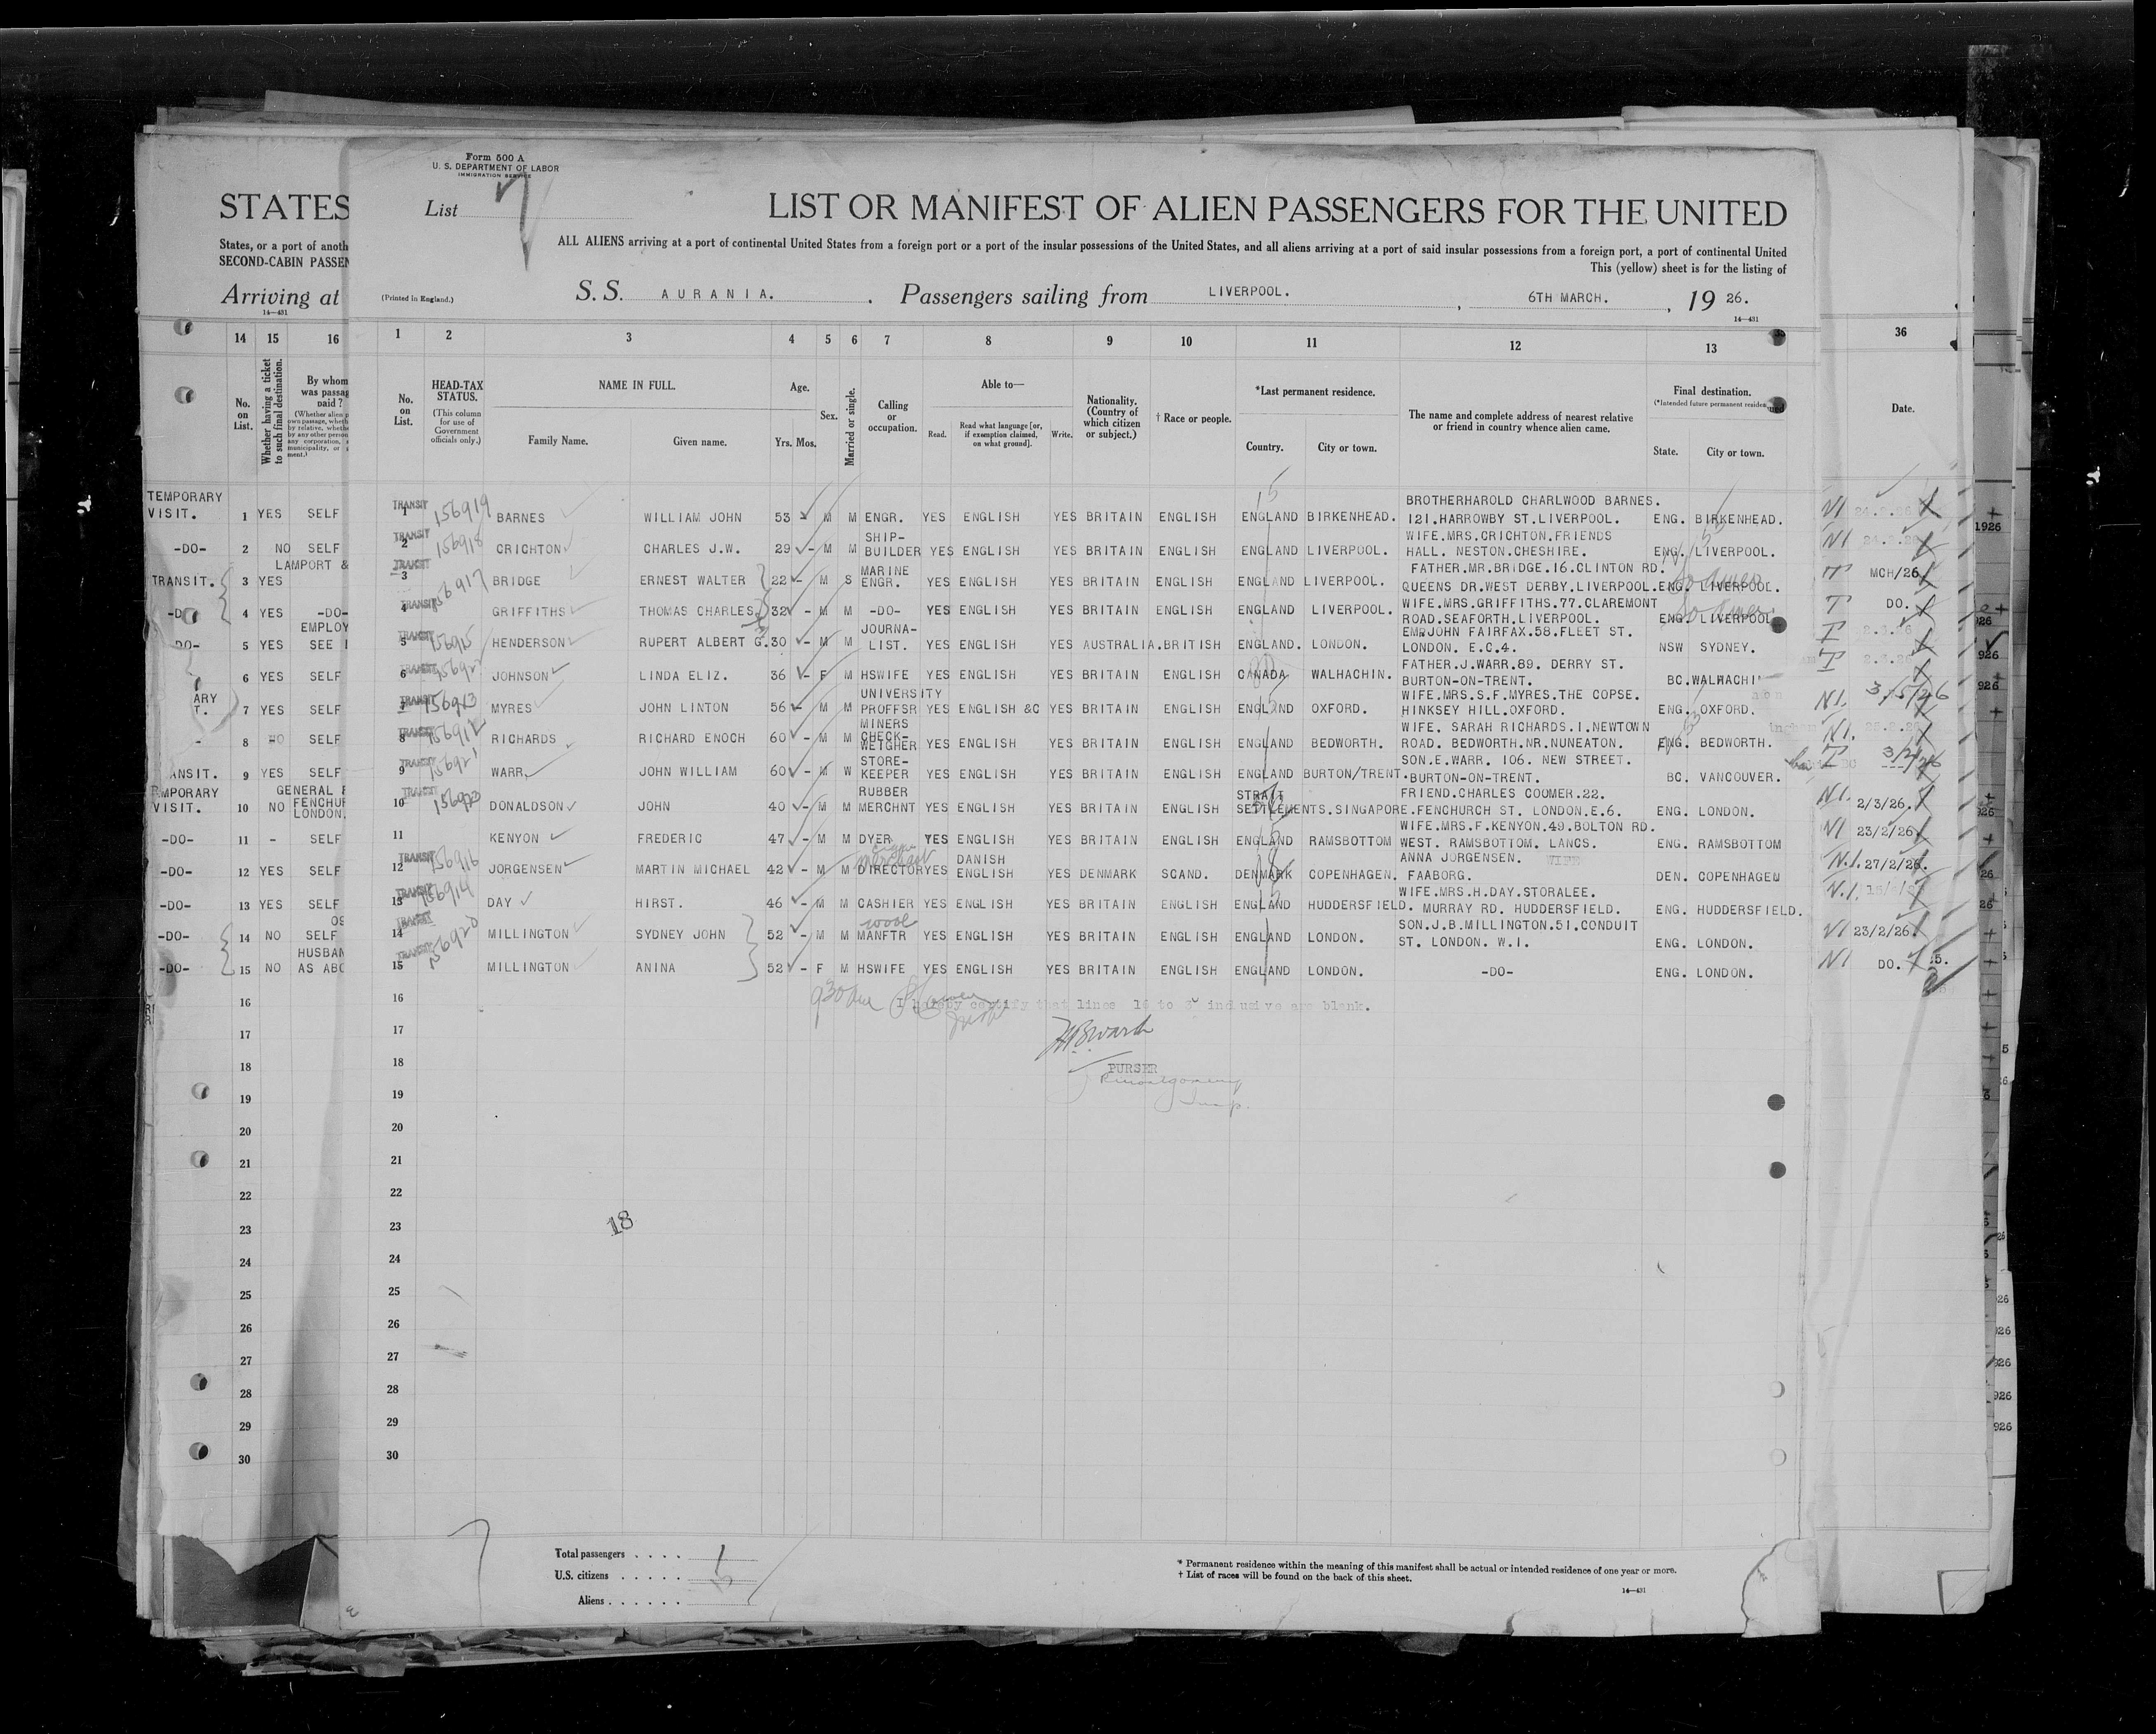 Form 500 A
U. S. DEPARTMENT OF LABOR
IMMIGRATION SERVICE
STATES
List 7
LIST OR MANIFEST OF ALIEN PASSENGERS FOR THE UNITED
States, or a port of anoth
SECOND-CABIN PASSEN
ALL ALIENS arriving at a port of continental United States from a foreign port or a port of the insular possessions of the United States, and all aliens arriving at a port of said insular possessions from a foreign port, a port of continental United
This (yellow) sheet is for the listing of
Arriving at
14—431
(Printed in England.)
S. S. AURANIA. Passengers sailing from LIVERPOOL. , 6TH MARCH. , 19 26.
14—431
14 15 16 1 2 3 4 5 6 7 8 9 10 11 12 13 36
No. on List.
Whether having a ticket to such final destination.
By whom was passag paid ?
No. on List.
HEAD-TAX STATUS.
(This column for use of Government officials only.)
NAME IN FULL.
Family Name. Given name.
Age.
Yrs. Mos.
Sex.
Married or single.
Calling or occupation.
Able to—
Read. Read what language [or, if exemption claimed, on what ground]. Write.
Nationality. (Country of which citizen or subject.)
† Race or people.
*Last permanent residence.
Country. City or town.
The name and complete address of nearest relative or friend in country whence alien came.
Final destination.
(*Intended future permanent residence)
State. City or town.
Date.
TEMPORARY VISIT. 1 YES SELF TRANSIT 1 156919 BARNES WILLIAM JOHN 53 - M M ENGR. YES ENGLISH YES BRITAIN ENGLISH ENGLAND BIRKENHEAD. BROTHERHAROLD CHARLWOOD BARNES. 121.HARROWBY ST.LIVERPOOL. ENG. BIRKENHEAD. NI
-DO- 2 NO SELF TRANSIT 2 156918 CRICHTON CHARLES J.W. 29 - M M SHIP-BUILDER YES ENGLISH YES BRITAIN ENGLISH ENGLAND LIVERPOOL. WIFE.MRS.CRICHTON.FRIENDS HALL. NESTON.CHESHIRE. ENG. LIVERPOOL. NI
LAMPORT &
TRANSIT. 3 YES TRANSIT 3 156917 BRIDGE ERNEST WALTER 22 - M S MARINE ENGR. YES ENGLISH YES BRITAIN ENGLISH ENGLAND LIVERPOOL. FATHER.MR.BRIDGE.16.CLINTON RD. QUEENS DR.WEST DERBY.LIVERPOOL. ENG. LIVERPOOL. T MCH/26
4 YES -DO- TRANSIT 4 GRIFFITHS THOMAS CHARLES. 32 - M M -DO- YES ENGLISH YES BRITAIN ENGLISH ENGLAND LIVERPOOL. WIFE.MRS.GRIFFITHS.77.CLAREMONT ROAD.SEAFORTH.LIVERPOOL. ENG. LIVERPOOL T DO.
EMPLOY
-DO- 5 YES SEE TRANSIT 5 156915 HENDERSON RUPERT ALBERT G. 30 - M M JOURNA-LIST. YES ENGLISH YES AUSTRALIA.BRITISH ENGLAND. LONDON. EMP.JOHN FAIRFAX.58.FLEET ST. LONDON. E.C.4. NSW SYDNEY. T
6 YES SELF TRANSIT 6 JOHNSON LINDA ELIZ. 36 - F M HSWIFE YES ENGLISH YES BRITAIN ENGLISH CANADA WALHACHIN. FATHER.J.WARR.89. DERRY ST. BURTON-ON-TRENT. BC.WALHACHI T
ARY T. 7 YES SELF TRANSIT 7 156913 MYRES JOHN LINTON 56 - M M UNIVERSITY PROFFSR YES ENGLISH &C YES BRITAIN ENGLISH ENGLAND OXFORD. WIFE.MRS.S.F.MYRES.THE COPSE. HINKSEY HILL.OXFORD. ENG. OXFORD. NI. 3/5/26
- 8 NO SELF TRANSIT 8 156912 RICHARDS RICHARD ENOCH 60 - M M MINERS CHECK-WEIGHER YES ENGLISH YES BRITAIN ENGLISH ENGLAND BEDWORTH. WIFE. SARAH RICHARDS.I.NEWTOWN ROAD. BEDWORTH.NR.NUNEATON. ENG. BEDWORTH. NI.
ANSIT. 9 YES SELF TRANSIT 9 156921 WARR JOHN WILLIAM 60 - M W STORE-KEEPER YES ENGLISH YES BRITAIN ENGLISH ENGLAND BURTON/TRENT. SON.E.WARR. 106. NEW STREET. BURTON-ON-TRENT. BC. VANCOUVER. T
MPORARY VISIT. 10 NO GENERAL FENCHUR LONDON. TRANSIT 10 156923 DONALDSON JOHN 40 - M M RUBBER MERCHNT YES ENGLISH YES BRITAIN ENGLISH STRAIT SETTLEMENTS.SINGAPORE. FRIEND.CHARLES COOMER.22. FENCHURCH ST. LONDON.E.6. ENG. LONDON. N.I. 2/3/26.
-DO- 11 - SELF 11 KENYON FREDERIC 47 - M M DYER YES ENGLISH YES BRITAIN ENGLISH ENGLAND RAMSBOTTOM WIFE.MRS.F.KENYON.49.BOLTON RD. WEST. RAMSBOTTOM. LANCS. ENG. RAMSBOTTOM NI 23/2/26.
-DO- 12 YES SELF TRANSIT 12 156916 JORGENSEN MARTIN MICHAEL 42 - M M merchant DIRECTOR YES DANISH ENGLISH YES DENMARK SCAND. DENMARK COPENHAGEN. ANNA JORGENSEN. WIFE FAABORG. DEN. COPENHAGEN N.I. 27/2/26.
-DO- 13 YES SELF TRANSIT 13 156914 DAY HIRST. 46 - M M CASHIER YES ENGLISH YES BRITAIN ENGLISH ENGLAND HUDDERSFIELD. WIFE.MRS.H.DAY.STORALEE. MURRAY RD. HUDDERSFIELD. ENG. HUDDERSFIELD. N.I.
-DO- 14 NO SELF TRANSIT 14 MILLINGTON SYDNEY JOHN 52 - M M wool MANFTR YES ENGLISH YES BRITAIN ENGLISH ENGLAND LONDON. SON.J.B.MILLINGTON.51.CONDUIT ST. LONDON. W.I. ENG. LONDON. NI 23/2/26.
HUSBAN
-DO- 15 NO AS ABO TRANSIT 15 156920 MILLINGTON ANINA 52 - F M HSWIFE YES ENGLISH YES BRITAIN ENGLISH ENGLAND LONDON. -DO- ENG. LONDON. NI DO.
16 16 I hereby certify that lines 16 to 30 inclusive are blank.
17 17
18 18 PURSER
19 19
20 20
21 21
22 22
23 23 18
24 24
25 25
26 26
27 27
28 28
29 29
30 30
Total passengers . . . .
U.S. citizens . . . . . .
Aliens . . . . . . .
* Permanent residence within the meaning of this manifest shall be actual or intended residence of one year or more.
† List of races will be found on the back of this sheet.
14—431